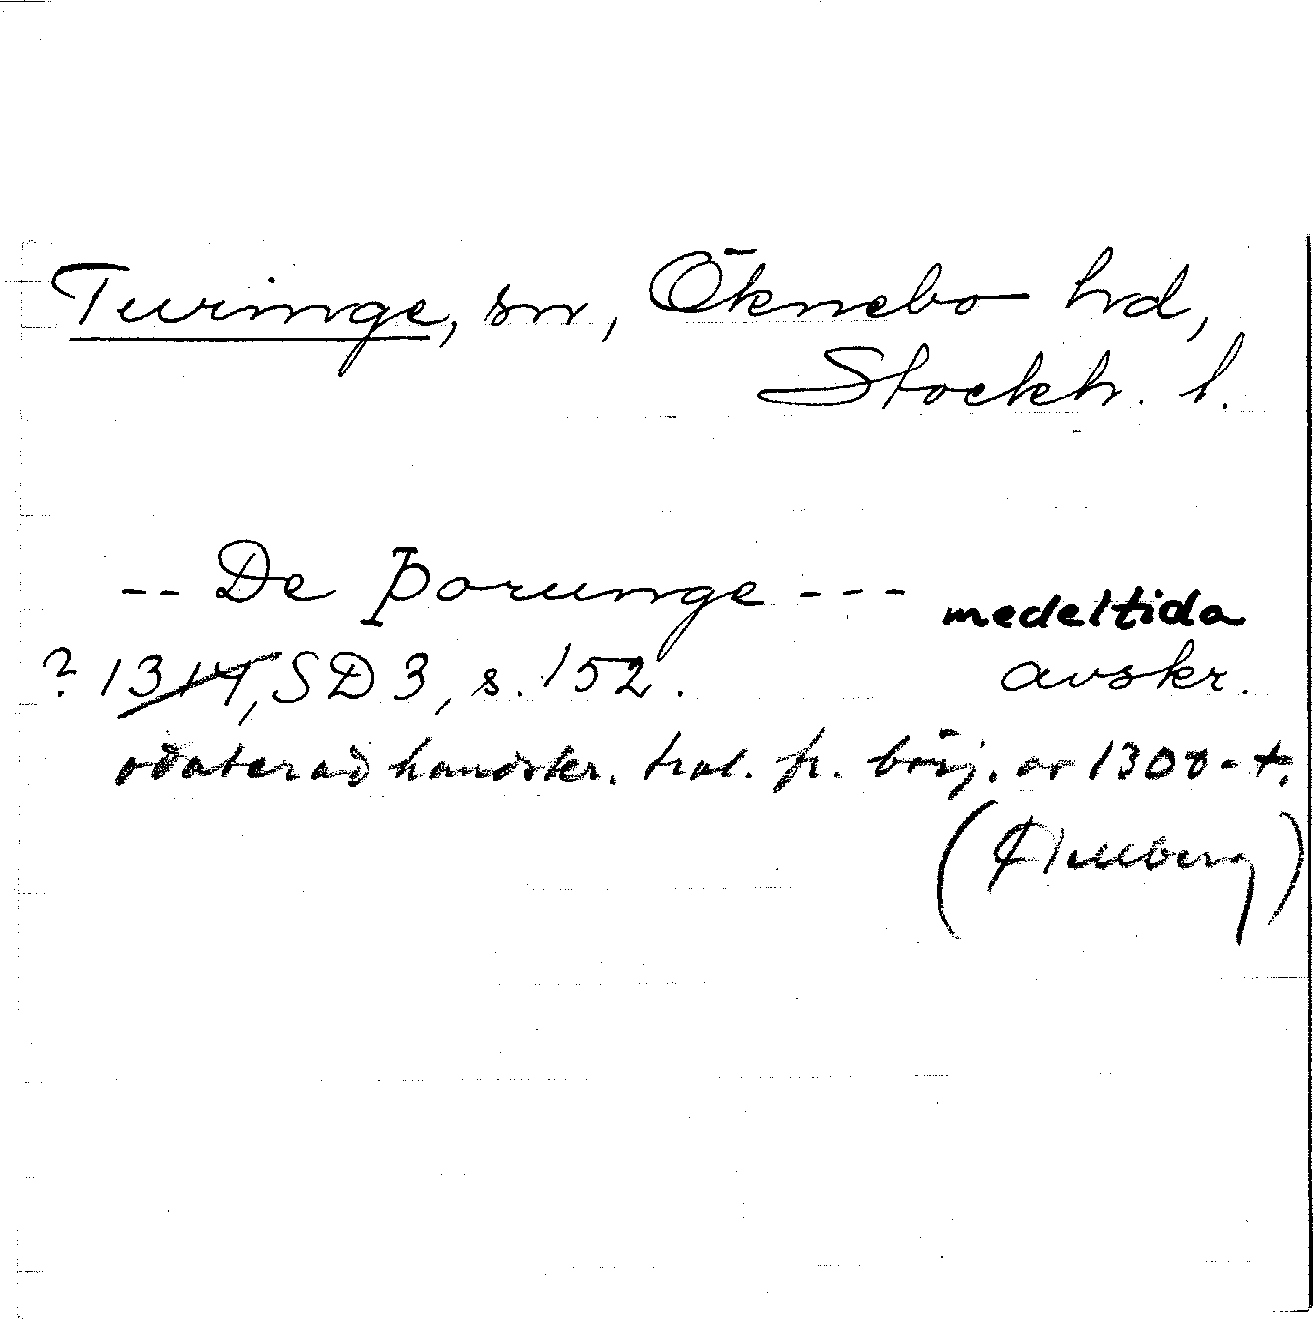 Turinge, sn, Öknebo hrd,
Stockh. l.
-- De Þorunge --- medeltida
? 1314, SD 3, s. 152. avskr.
odaterad handskr. trol. fr. börj. av 1300-t.
(Hellberg)